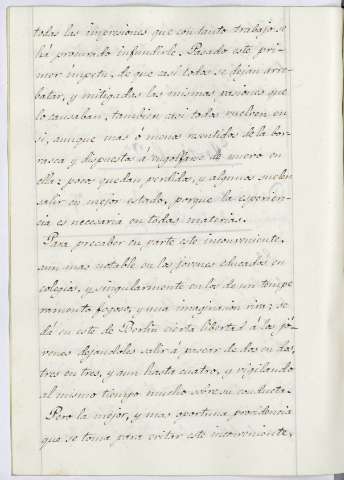 todas las impresiones que con tanto trabajo se
há procurado infundirle. Pasado este pri-
mer ímpetu, de que casi todos se dejan arre-
batar, y mitigadas las mismas pasiones que
lo causaban, tambien casi todos vuelven en
si, aunque mas ó menos resentidos de la bor-
rasca y dispuestos á engolfarse de nuevo en
ella: pocos quedan perdidos, y algunos suelen
salir en mejor estado, porque la esperien-
cia es necesaria en todas materias.
Para precaber en parte este inconveniente,
aun mas notable en los jovenes educados en
colegios, y singularmente en los de un tempe-
ramento fogoso, y una imaginacion viva; se
dá en este de Berlin cierta libertad á los jó-
venes dejandoles salir á pasear de dos en dos,
tres en tres, y aun hasta cuatro, y vigilando
al mismo tiempo mucho sobre su conducta.
Pero la mejor, y mas oportuna providencia
que se toma para evitar este inconveniente,